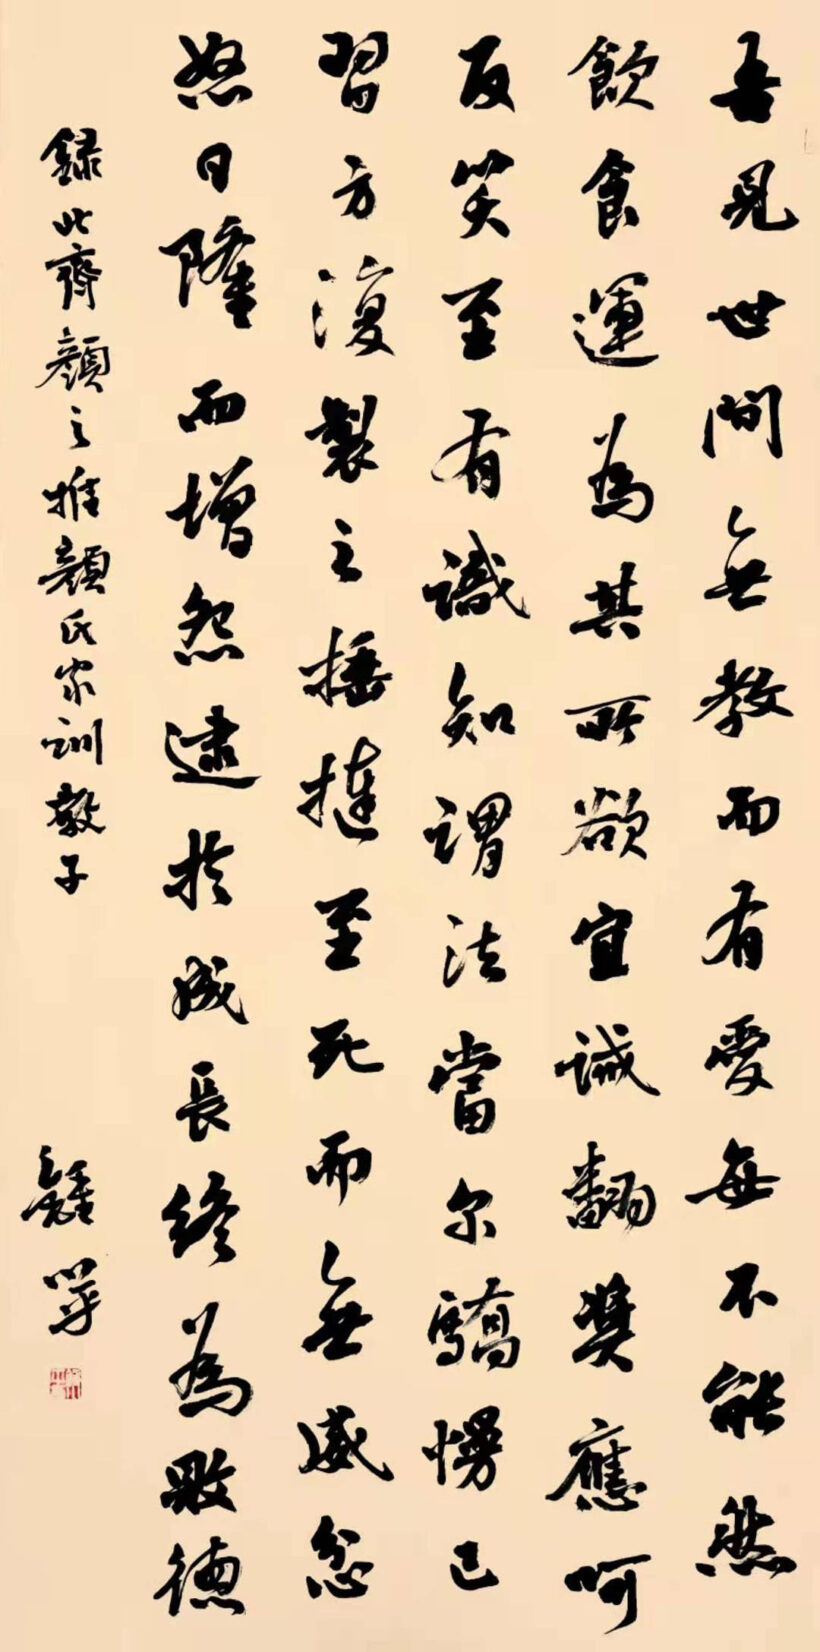 吾見世間無教而有愛每不能然
飲食運為其所欲宜誡翻奬應呵
反笑至有識知謂法當尔驕慢已
習方復製之捶撻至死而無威忿
怒日隆而增怨逮於成長終為敗德
録北齊顏之推顏氏家訓教子